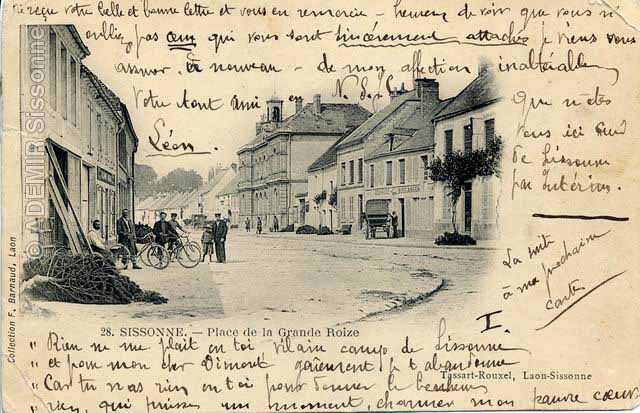 Ai reçu votre belle et bonne lettre et vous en remercie – heureux de voir que vous n'
oubliez pas ceux qui vous sont sincèrement attachés je viens vous
assurer à nouveau – de mon affection inaltérable
Votre tout ami en N.S.J.C
Léon
Que n'êtes
vous ici
de Sissonne
par Intérim.
La suite
à ma prochaine
carte
© ADEMIR Sissonne
Collection F. Barnaud, Laon
28. SISSONNE. — Place de la Grande Roize
I.
Tassart-Rouxel, Laon-Sissonne
" Rien ne me plait en toi vilain camp de Sissonne
" et pour mon cher Dimont gaiement je t'abandonne
" Car tu n'as rien en toi pour donner le bonheur
" rien, qui puisse un moment charmer mon pauvre cœur.